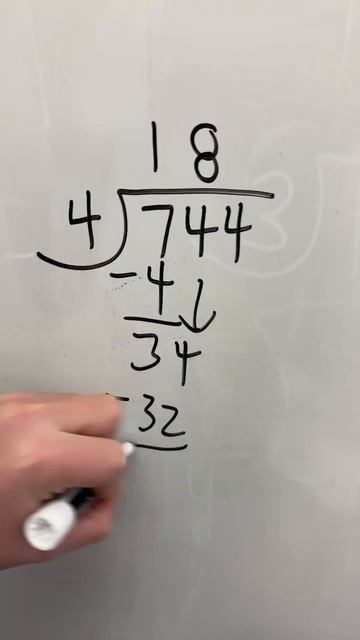 18
4 744
-4
34
-32